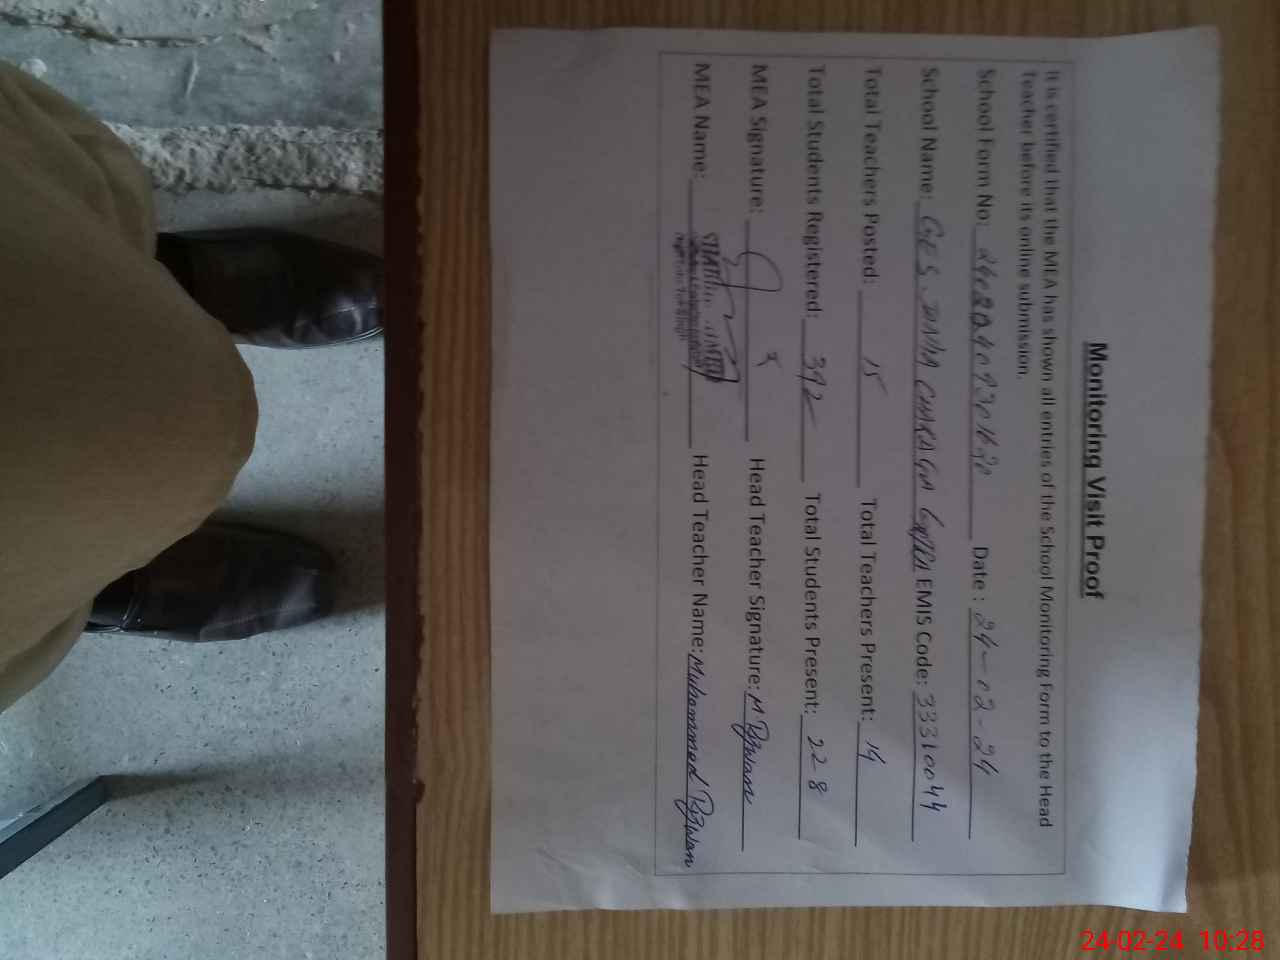 Monitoring Visit Proof
It is certified that the MEA has shown all entries of the School Monitoring Form to the Head
Teacher before its online submission.
School Form No: Date : 24-02-24
School Name: GES EMIS Code: 33310044
Total Teachers Posted: 15 Total Teachers Present: 14
Total Students Registered: 392 Total Students Present: 228
MEA Signature: Head Teacher Signature: M Rizwan
MEA Name: Head Teacher Name: Muhammad Rizwan
24-02-24 10:28